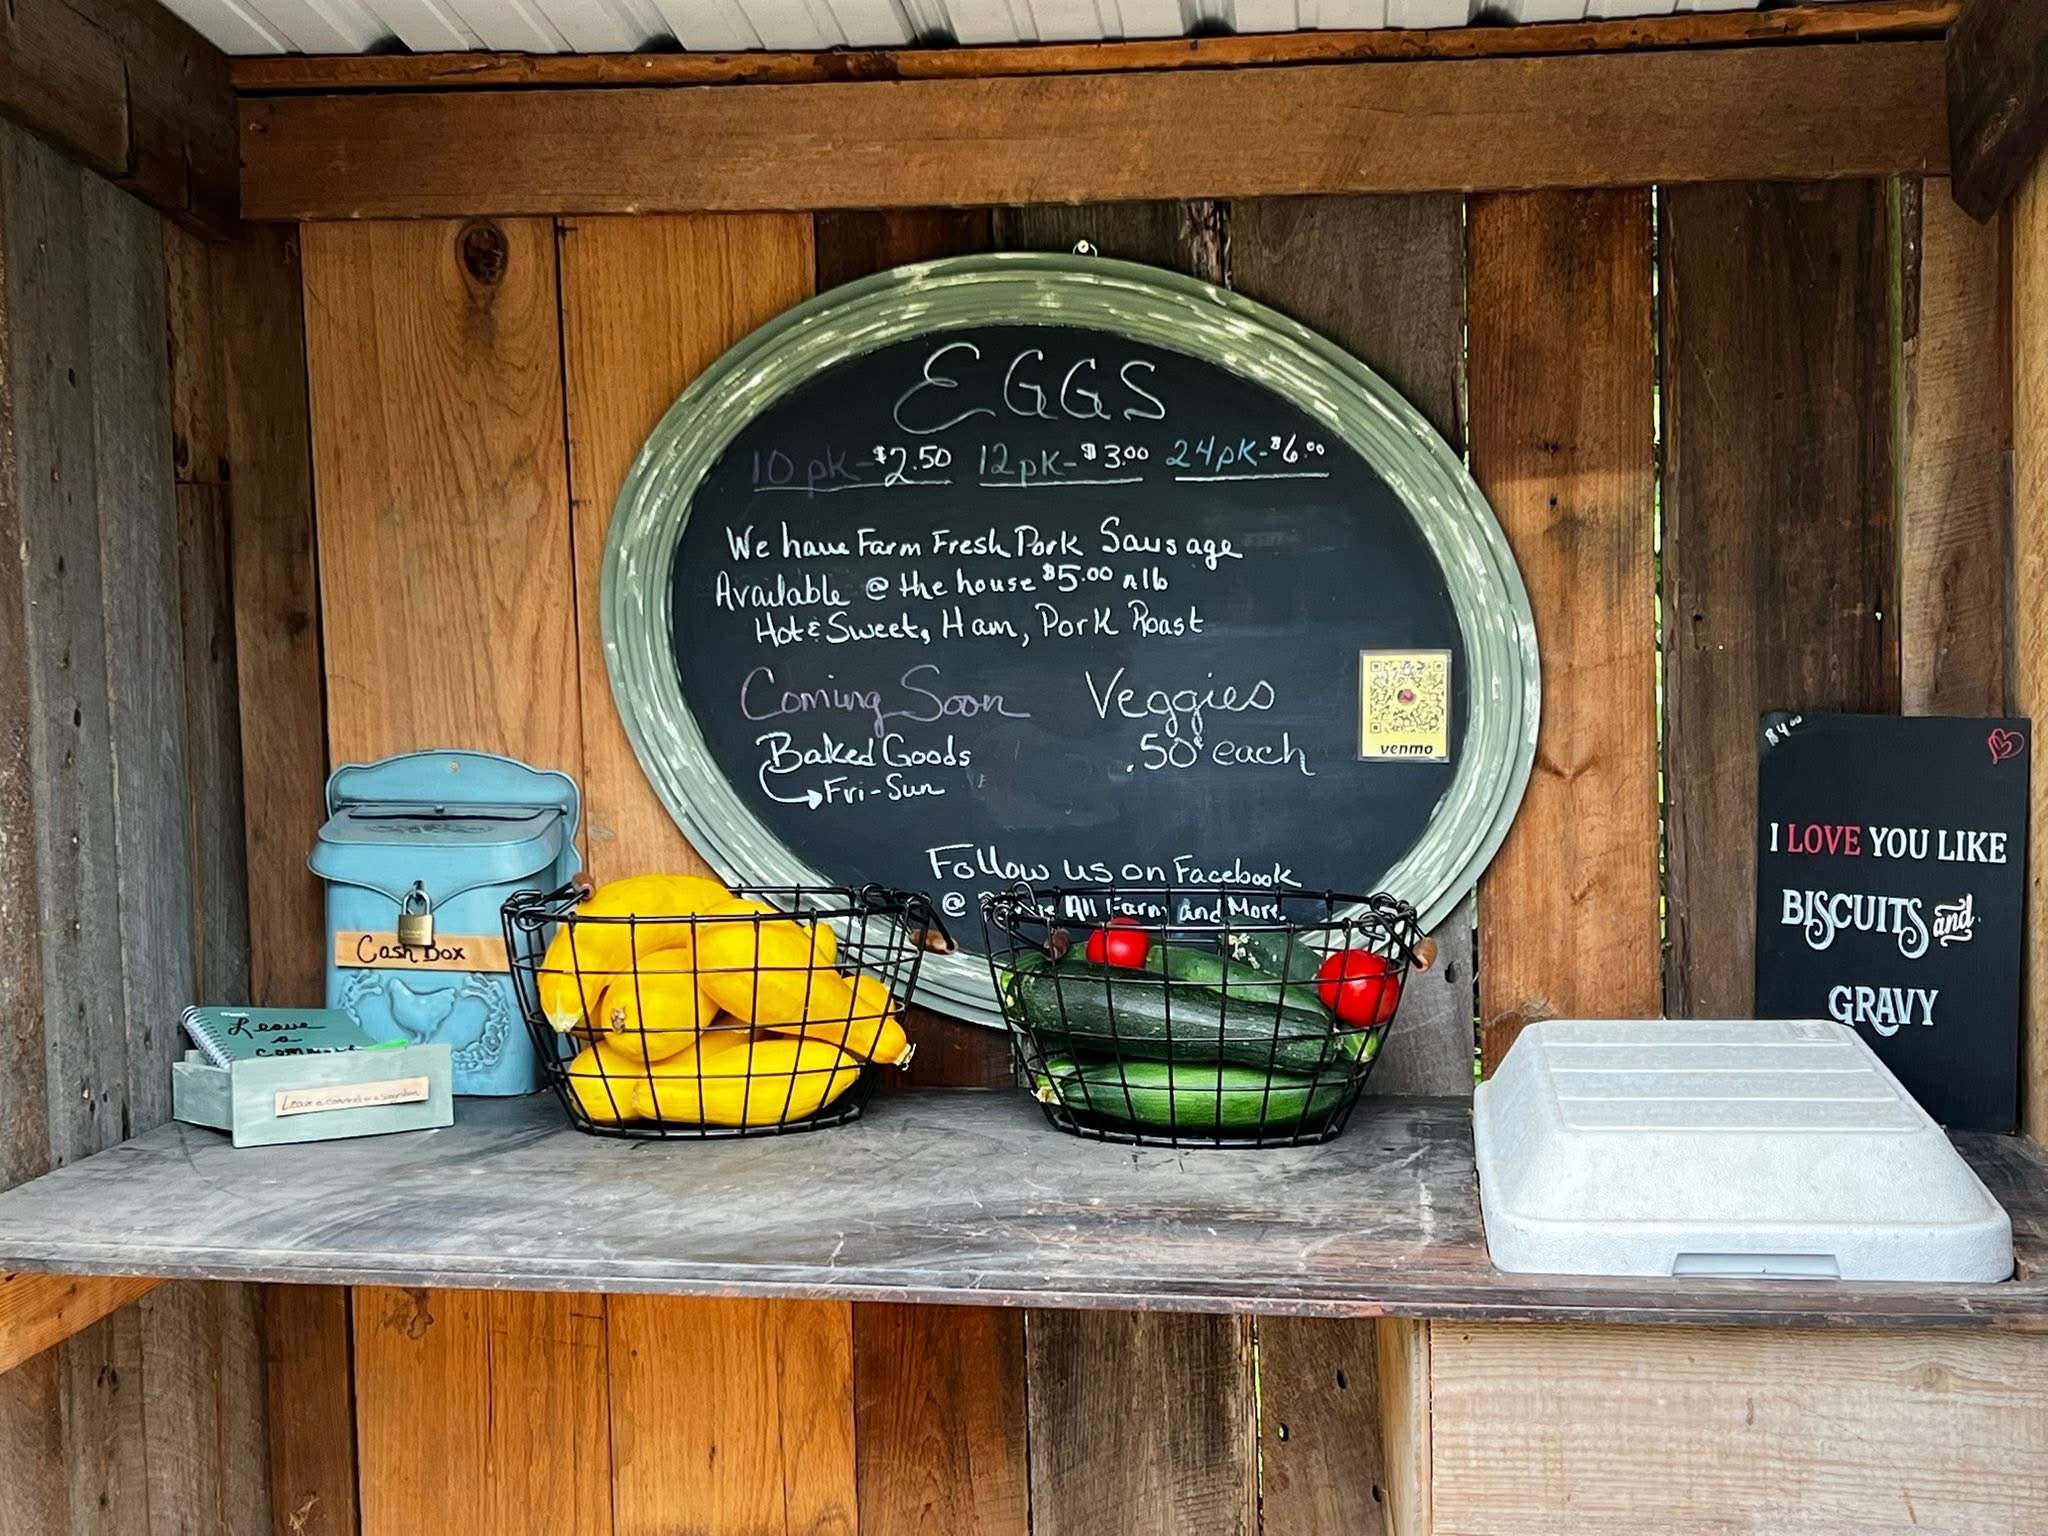 EGGS
10 pk-$2.50 12pk-$3.00 24pk-$6.00
We have Farm Fresh Pork Sausage
Available @ the house $5.00 a lb
Hot & Sweet, Ham, Pork Roast
Coming Soon
Baked Goods
Fri-Sun
Veggies
.50¢ each
venmo
Follow us on Facebook
@ All Farm and More.
Cash Box
Leave
a
Leave a comment or a
$4.00
I LOVE YOU LIKE
BISCUITS and
GRAVY